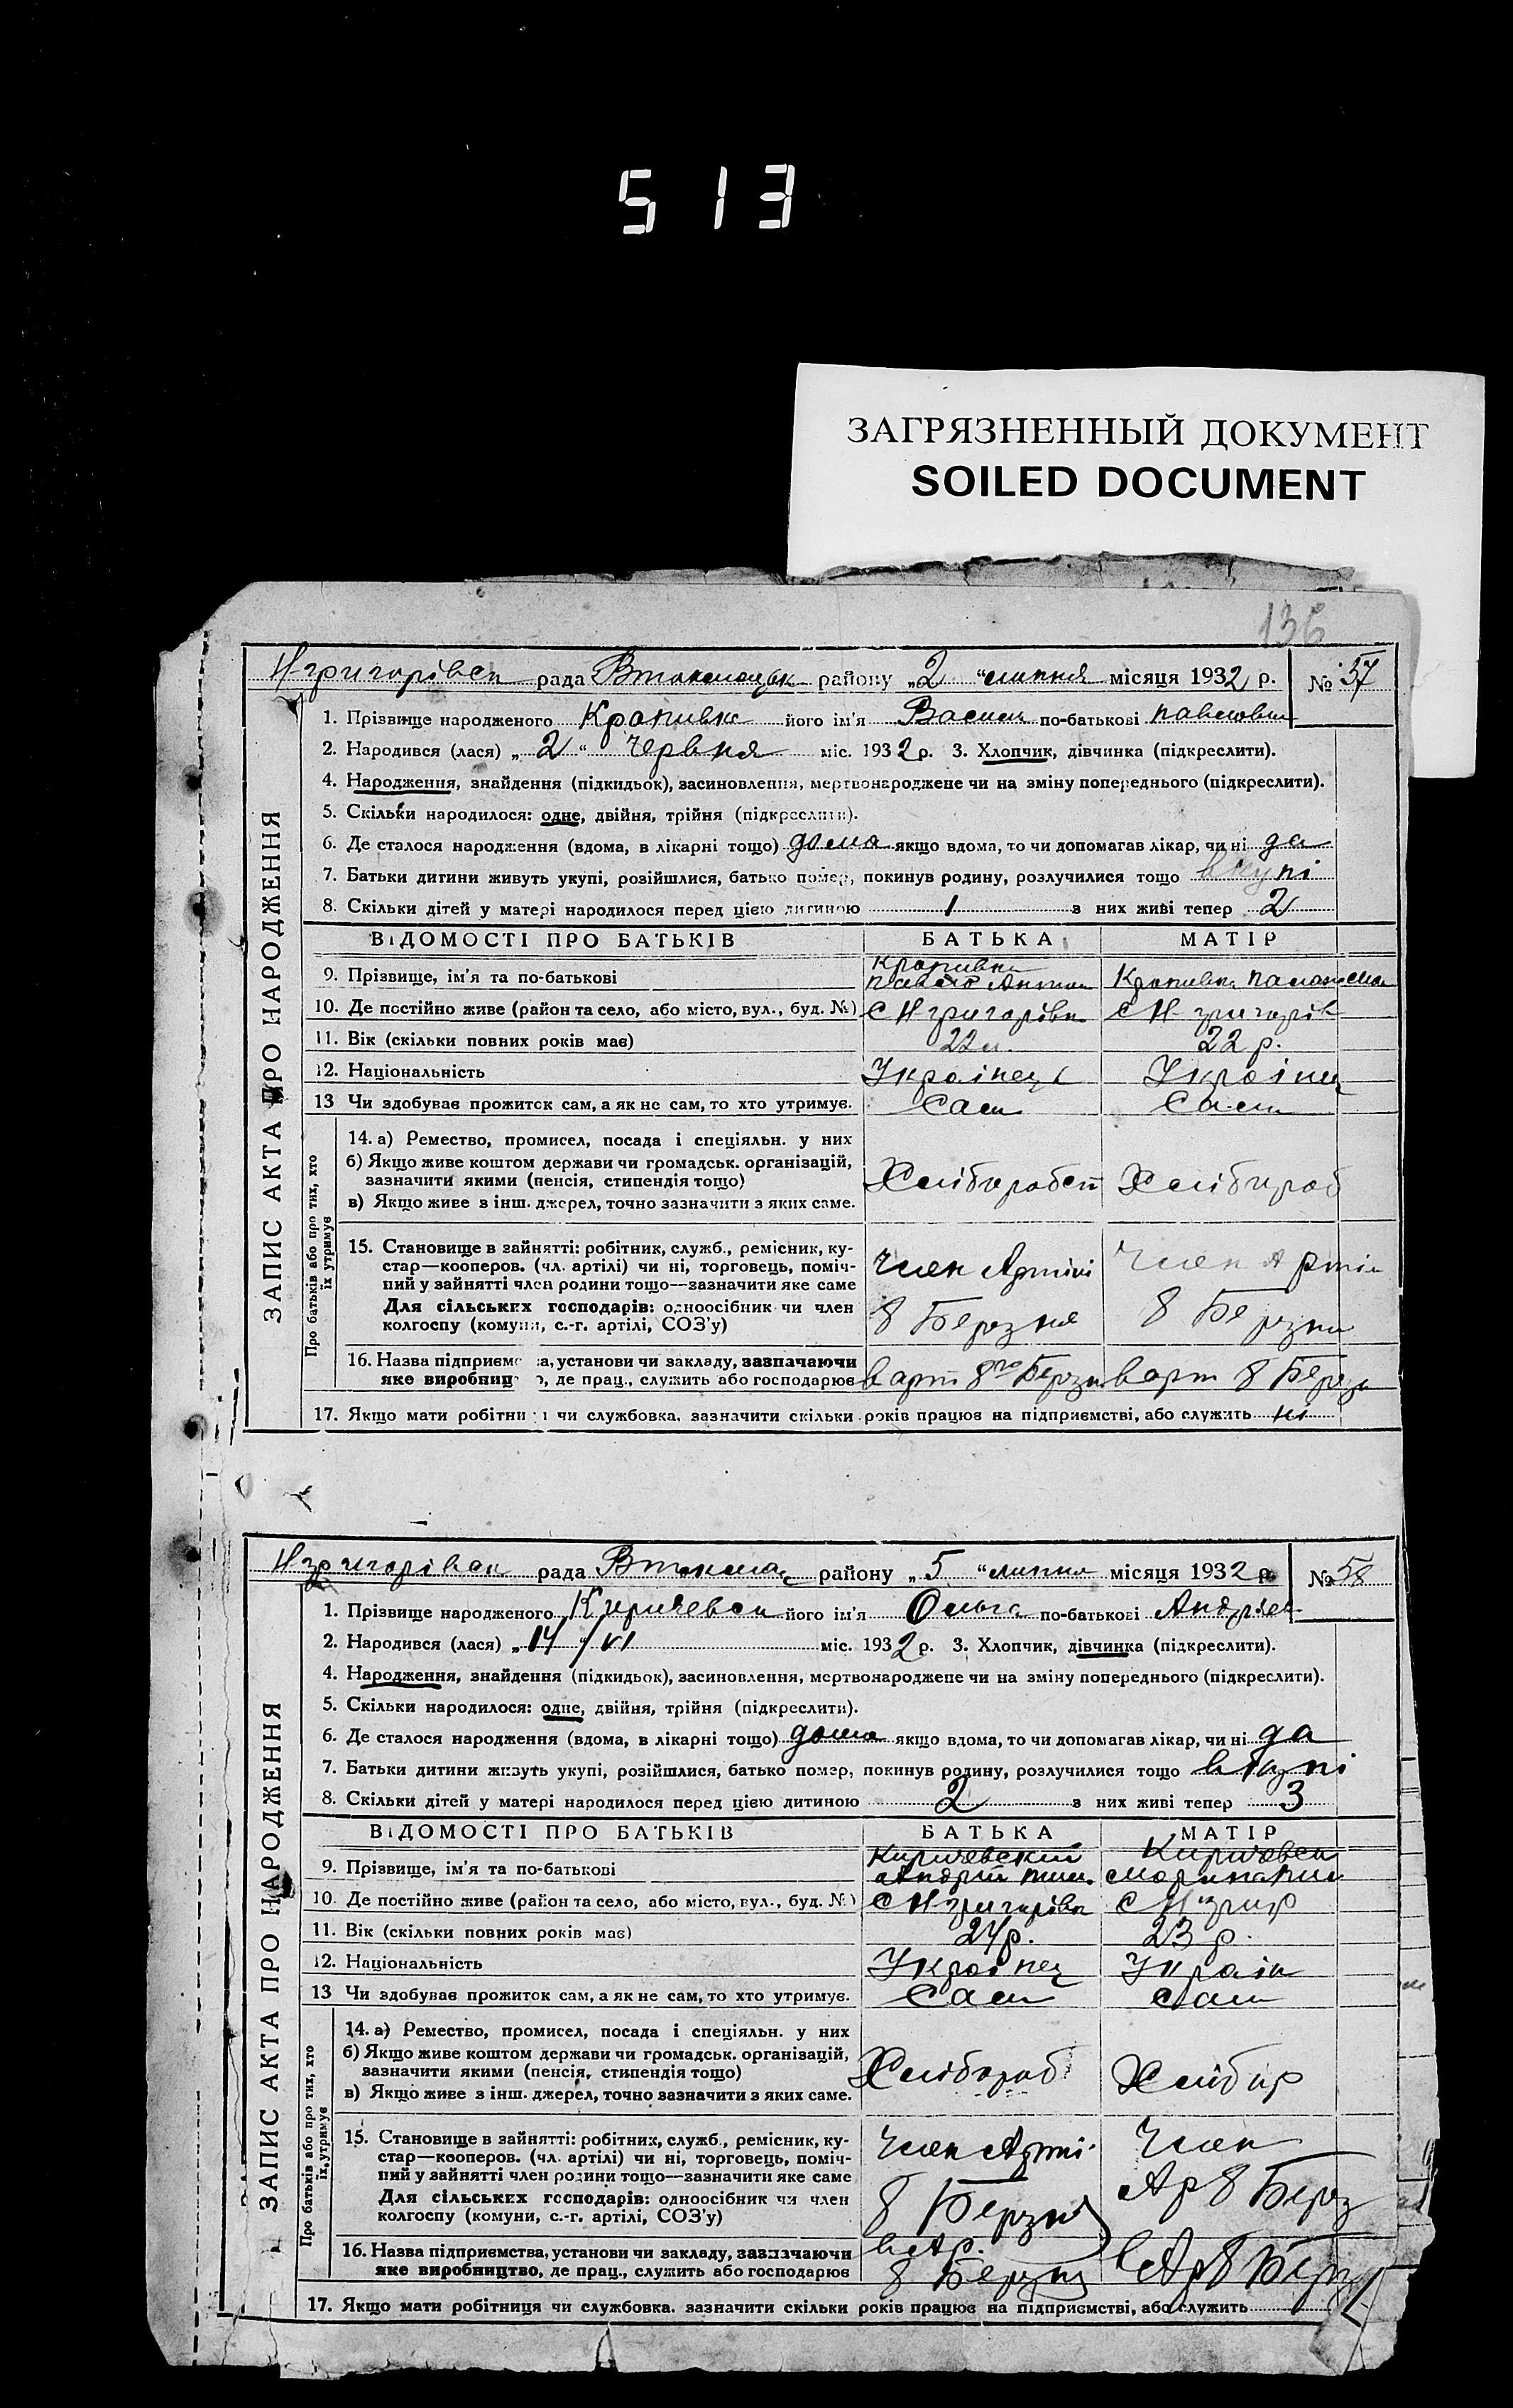 513
ЗАГРЯЗНЕННЫЙ ДОКУМЕНТ
SOILED DOCUMENT
136
Н григорівск рада Втокмацьк району „2“ липня місяця 1932 р. № 57
ЗАПИС АКТА ПРО НАРОДЖЕННЯ
1. Прізвище народженого Кропивка його ім'я Василь по-батькові Павлович
2. Народився (лася) „2“ червня міс. 1932 р. 3. Хлопчик, дівчинка (підкреслити).
4. Народження, знайдення (підкидьок), засиновлення, мертвонароджене чи на зміну попереднього (підкреслити).
5. Скільки народилося: одне, двійня, трійня (підкреслити).
6. Де сталося народження (вдома, в лікарні тощо) дома якщо вдома, то чи допомагав лікар, чи ні да
7. Батьки дитини живуть укупі, розійшлися, батько помер, покинув родину, розлучилися тощо вкупі
8. Скільки дітей у матері народилося перед цією дитиною 1 з них живі тепер 2
ВІДОМОСТІ ПРО БАТЬКІВ БАТЬКА МАТІР
9. Прізвище, ім'я та по-батькові Кропивка Павло Антон Кропивка
10. Де постійно живе (район та село, або місто, вул., буд. №) С Н григорівка С Н григорів
11. Вік (скільки повних років має) 22 22 р.
12. Національність Українець Україн
13 Чи здобуває прожиток сам, а як не сам, то хто утримує. Сам Сам
Про батьків або про тих, хто їх утримує
14. а) Ремество, промисел, посада і спеціяльн. у них
б) Якщо живе коштом держави чи громадськ. організацій,
зазначити якими (пенсія, стипендія тощо) Хліборобст Хлібороб
в) Якщо живе з інш. джерел, точно зазначити з яких саме.
15. Становище в зайнятті: робітник, служб., ремісник, ку-
стар—кооперов. (чл. артілі) чи ні, торговець, поміч- Член Артілі Член Артіл
ний у зайнятті член родини тощо—зазначити яке саме
Для сільських господарів: одноосібник чи член 8 Березня 8 Березня
колгоспу (комуни, с.-г. артілі, СОЗ'у)
16. Назва підприємства, установи чи закладу, зазначаючи
яке виробництво, де прац., служить або господарює в арт 8го Березн в арт 8 Берез
17. Якщо мати робітниця чи службовка, зазначити скільки років працює на підприємстві, або служить ні
Н григорівск рада Втокмац району „5“ липня місяця 1932 р. № 58
ЗАПИС АКТА ПРО НАРОДЖЕННЯ
1. Прізвище народженого Киричевск його ім'я Ольга по-батькові Андрієв
2. Народився (лася) „14/VI міс. 1932 р. 3. Хлопчик, дівчинка (підкреслити).
4. Народження, знайдення (підкидьок), засиновлення, мертвонароджене чи на зміну попереднього (підкреслити).
5. Скільки народилося: одне, двійня, трійня (підкреслити).
6. Де сталося народження (вдома, в лікарні тощо) дома якщо вдома, то чи допомагав лікар, чи ні да
7. Батьки дитини живуть укупі, розійшлися, батько помер, покинув родину, розлучилися тощо вкупі
8. Скільки дітей у матері народилося перед цією дитиною 2 з них живі тепер 3
ВІДОМОСТІ ПРО БАТЬКІВ БАТЬКА МАТІР
9. Прізвище, ім'я та по-батькові Киричевский Андрій Киричевск
10. Де постійно живе (район та село, або місто, вул., буд. №) С Н григорівк С Н григ
11. Вік (скільки повних років має) 24 р. 23 р.
12. Національність Українец Україн
13 Чи здобуває прожиток сам, а як не сам, то хто утримує. Сам Сам
Про батьків або про тих, хто їх утримує
14. а) Ремество, промисел, посада і спеціяльн. у них
б) Якщо живе коштом держави чи громадськ. організацій,
зазначити якими (пенсія, стипендія тощо) Хлібороб Хлібор
в) Якщо живе з інш. джерел, точно зазначити з яких саме.
15. Становище в зайнятті: робітник, служб., ремісник, ку-
стар—кооперов. (чл. артілі) чи ні, торговець, поміч- Член Арті Член
ний у зайнятті член родини тощо—зазначити яке саме
Для сільських господарів: одноосібник чи член 8 Березня Ар 8 Берез
колгоспу (комуни, с.-г. артілі, СОЗ'у)
16. Назва підприємства, установи чи закладу, зазначаючи в Ар.
яке виробництво, де прац., служить або господарює 8 Березн в Ар 8 Бер
17. Якщо мати робітниця чи службовка, зазначити скільки років працює на підприємстві, або служить